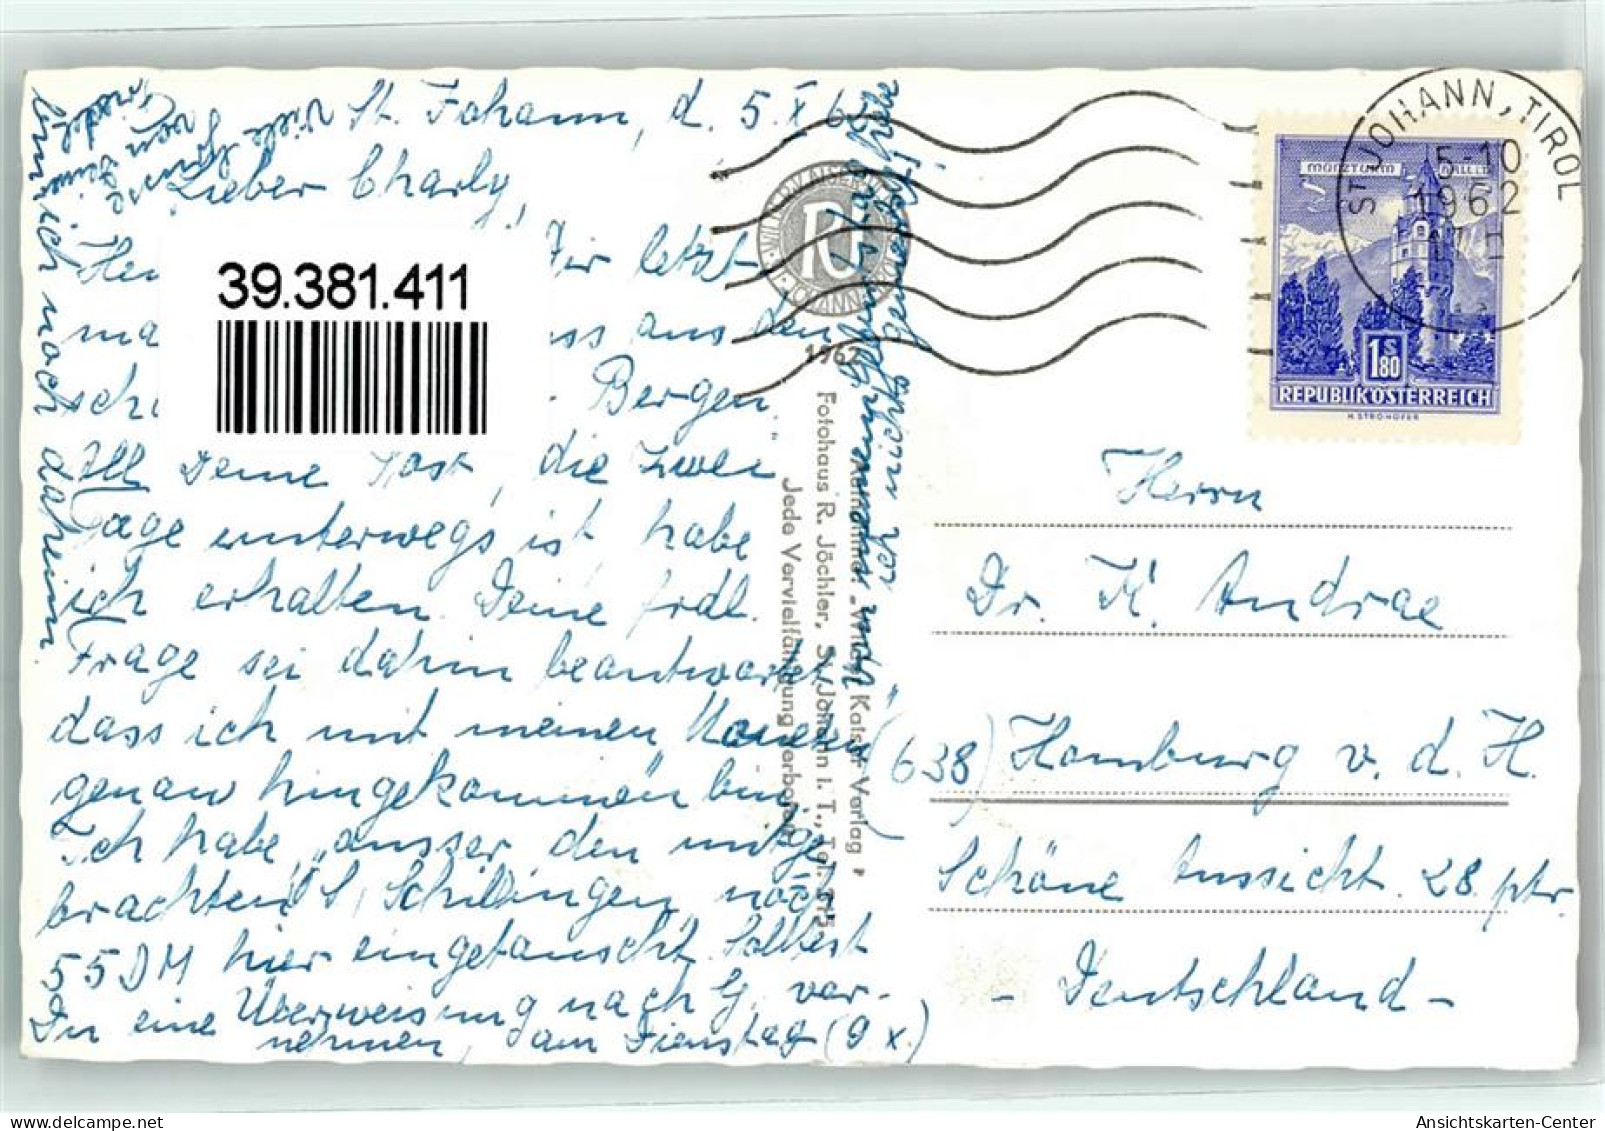 St. Johann, d. 5. X. 62
Lieber Charly,
Dir letzt
ma ss aus den
schö Bergen.
All Deine Post, die zwei
Tage unterwegs ist habe
ich erhalten. Deine frdl.
Frage sei dahin beantwortet,
dass ich mit meinen
genau hingekommen bin.
Ich habe, ausser den mitge
brachten S, Schillingen noch
55 DM hier eingetauscht. Solltest
Du eine Überweisung nach G. vor-
nehmen, am Dienstag (9. X.)
bin ich noch daheim.
Viele
von Deiner
39.381.411
WILHELM KAISER VERLAG
ST. JOHANN
1962
Fotohaus R. Jöchler, St. Johann i. T., Tel.
Jede Vervielfältigung verboten
ST. JOHANN, TIROL
5-10
1962
MÜNZTURM HALL I. T.
1 S 80
REPUBLIK ÖSTERREICH
H. STROHOFER
Herrn
Dr. K. Andrae
(638) Homburg v. d. H.
Schöne Aussicht 28. ptr.
- Deutschland -
Ansichtskarten-Center